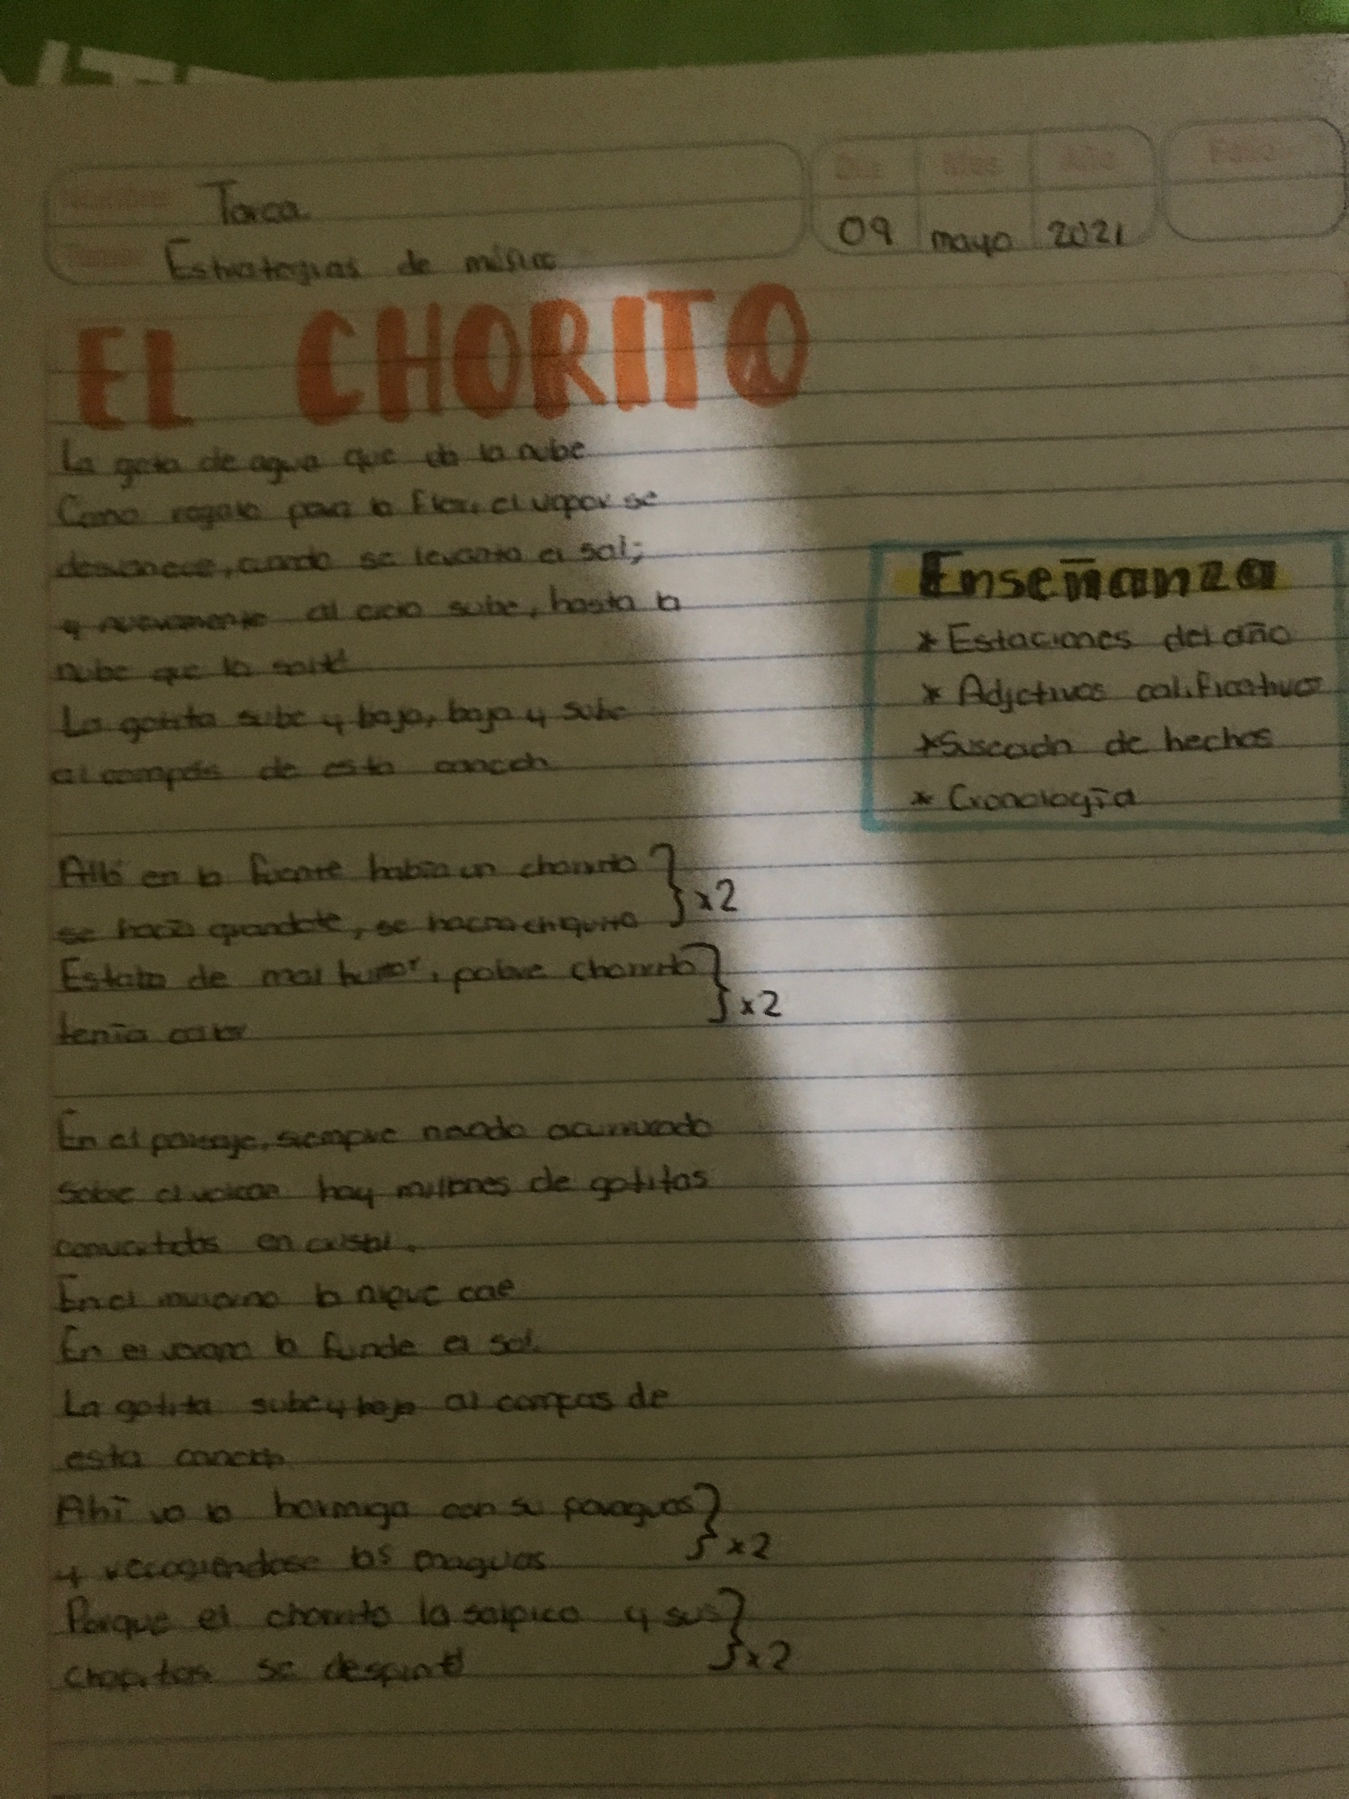 Nombre Tarea
Tema Estrategias de música
Día Mes Año Folio
09 mayo 2021
EL CHORITO
La gota de agua que da la nube
Como regalo para la flor, el vapor se
desvanece, cuando se levanta el sol;
y nuevamente al cielo sube, hasta la
nube que la soltó
La gotita sube y baja, baja y sube
al compás de esta
Allá en la fuente había un chorrito
se hacía grandote, se hacía chiquito } x2
Estaba de mal humor, pobre chorrito
tenía calor } x2
En el paisaje, siempre acurrucado
Sobre el volcan hay millones de gotitas
convertidas en cristal.
En el invierno la nieve cae
En el verano la funde el sol.
La gotita sube y baja al compas de
esta
Ahí va la hormiga con su paraguas
y recogiéndose las enaguas } x2
Porque el chorrito la salpico y sus
chapitas se despintó } x2
Enseñanza
* Estaciones del año
* Adjetivos calificativos
* de hechos
* Cronología